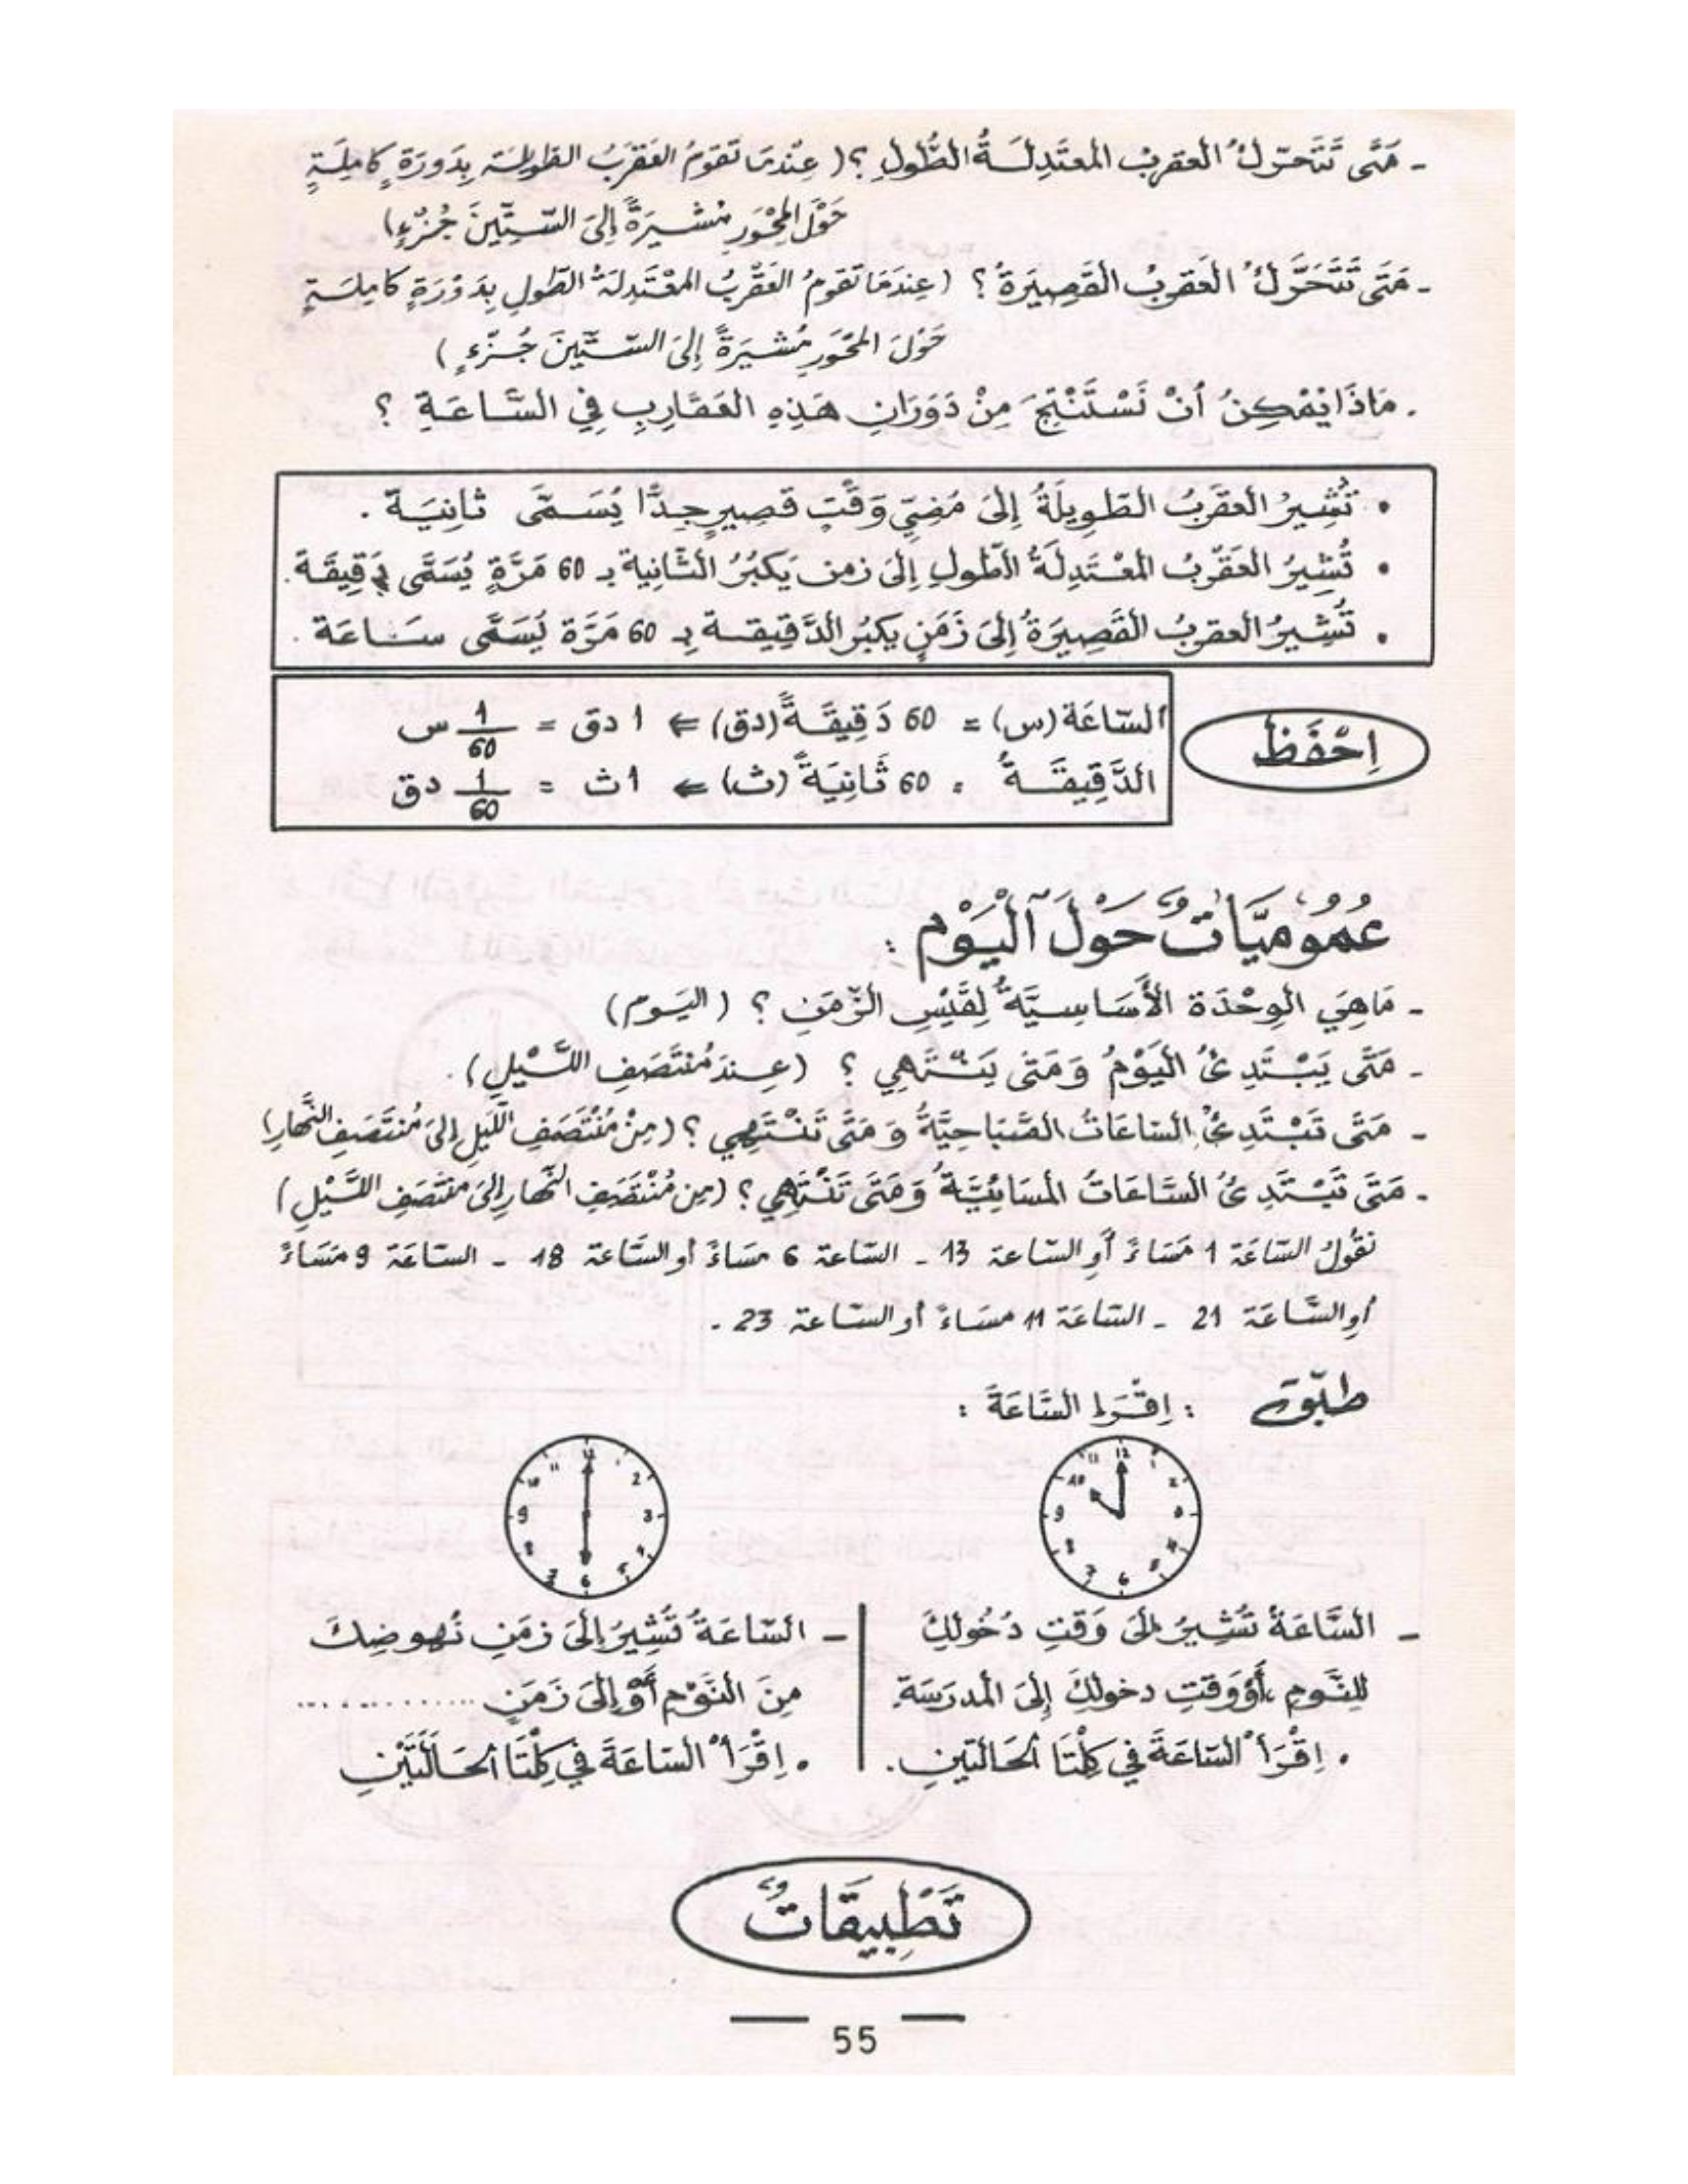 - مَتَى تَتَحَرّكُ العقربُ المعتَدِلَةُ الطُّولِ ؟ ( عِنْدمَا تَقومُ العَقرَبُ الطويلة بِدَورَةٍ كامِلَةٍ
حَوْلَ المِحْوَرِ مُشيرَةً إلَى السّتِّينَ جُزْءٍ)
- مَتَى تَتَحَرَّكُ العَقربُ القَصِيرَةُ ؟ (عِندَمَا تَقومُ العَقْرَبُ المعْتَدِلَةُ الطّولِ بِدَوْرَةٍ كامِلَةٍ
حَوْلَ المحْوَرِ مُشيَرَةً إلَى السّتِّينَ جُزْءٍ )
. مَاذَا يُمْكِنُ أنْ نَسْتَنْتِجَ مِنْ دَوَرَانِ هَذِهِ العَقَارِبِ فِي السَّاعَةِ ؟
• تُشِيرُ العَقرَبُ الطّوِيلَةُ إلَى مُضِيّ وَقْتٍ قَصِيرٍ جِدًّا يُسَمَّى ثانِيَة .
• تُشِيرُ العَقْرَبُ المعْتَدِلَةُ الطّولِ إلَى زمن يَكبُرُ الثَّانِيةَ بـ 60 مَرَّةٍ يُسَمَّى دَقِيقَة.
• تُشيرُ العقربُ القَصِيرَةُ إلَى زَمَنٍ يكبُر الدَّقِيقة بِـ 60 مَرَّة يُسَمَّى سَاعَة .
السّاعَة (س) = 60 دَقِيقَةً (دق) ⇐ 1 دق = 1/60 س
الدَّقِيقَةُ = 60 ثَانِيَةً (ث) ⇐ 1 ث = 1/60 دق
اِحْفَظْ
عُمُومِيَّاتٌ حَوْلَ اَلْيَوْم :
- مَاهِيَ الوِحْدَة الأَسَاسِيَّةُ لِقَيْسِ الزّمَنِ ؟ (اليَوم)
- مَتَى يَبْتَدِئُ اليَوْمُ وَمَتَى يَنْتَهِي ؟ (عِندَ مُنْتَصَفِ اللَّيْلِ).
- مَتَى تَبْتَدِئُ السّاعَاتُ الصَّبَاحِيَّةُ وَمَتَى تَنْتَهِي ؟ (مِنْ مُنْتَصَفِ اللَّيلِ إلَى مُنتَصَفِ النَّهارِ)
- مَتَى تَبْتَدِئُ السَّاعَاتُ المسَائِيَّةُ وَمَتَى تَنْتَهِي ؟ (مِن مُنْتَصَفِ النَّهارِ إلَى منْتَصَفِ اللَّيْلِ)
نقُولُ السّاعَة 1 مَسَاءً أوِ السّاعة 13 - السّاعة 6 مسَاءً أو السَّاعة 18 - السّاعَة 9 مَسَاءً
أوِ السَّاعَة 21 - السّاعَة 11 مسَاءً أو السّاعة 23 .
طبّق : اِقْرَإ السَّاعَةَ :
12 1 2 3 4 5 6 7 8 9 10 11
12 2 3 4 5 6 7 8 9 10 11
- السَّاعَةُ تُشِيرُ إلَى وَقتِ دُخُولِكَ
للِنَّومِ أَوْ وَقتِ دخولِكَ إلَى المدرَسَةِ
• اِقْرَأْ السّاعَةَ في كِلْتَا الحَالتَينِ .
- السّاعَةُ تُشِيرُ إلَى زمَنِ نُهوضِكَ
مِنَ النَوْمِ أَوْ إلَى زَمَنِ ..............
• اِقْرَأْ السّاعَةَ في كِلْتَا الحَالَتَيْنِ
تَطْبِيقَاتٌ
55